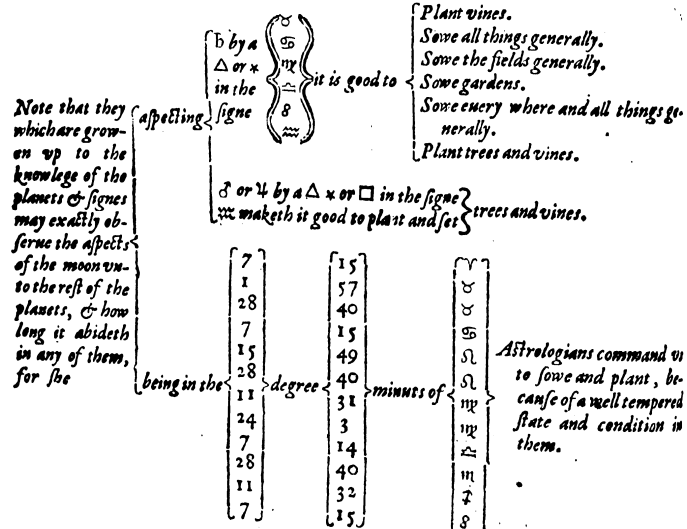 Note that they
which are grow-
en vp to the
knowlege of the
planets & signes
may exactly ob-
serue the aspects
of the moon vn-
to the rest of the
planets, & how
long it abideth
in any of them,
for she
aspecting
♄ by a
△ or ⚹
in the
signe
♉
♋
♍
♎
8
♒
it is good to
Plant vines.
Sowe all things generally.
Sowe the fields generally.
Sowe gardens.
Sowe euery where and all things ge-
nerally.
Plant trees and vines.
♂ or ♃ by a △ ⚹ or □ in the signe
♒ maketh it good to plant and set
trees and vines.
being in the
7
1
28
7
15
28
11
24
7
28
11
7
degree
15
57
40
15
49
40
31
3
14
40
32
15
minuts of
♈
♉
♉
♋
♌
♌
♍
♍
♎
♏
♐
8
Astrologians command
to sowe and plant, be-
cause of a well tempered
state and condition in
them.